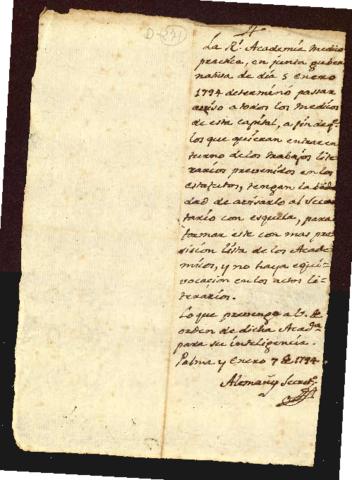 D-231
La Rl. Academia Medico
practica, en junta guber
nativa de dia 5 enero
1794 determinó passar
aviso a todos los Medicos
de esta capital, a fin de q.
los que quieran entrar en
turno de los trabajos lite
rarios prevenidos en los
estatutos, tengan la bon
dad de avisarlo al Secre
tario con esquela, para
formar este con mas pre
cision lista de los Acade
micos, y no haya equi
vocacion en los actos li
terarios.
Lo que prevengo a V. de
orden de dicha Acada.
para su inteligencia.
Palma y Enero 7 de 1794.
Alemañy Secret.